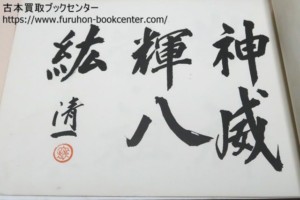 古本買取ブックセンター
https://www.furuhon-bookcenter.com/
神威
輝八
紘
清一